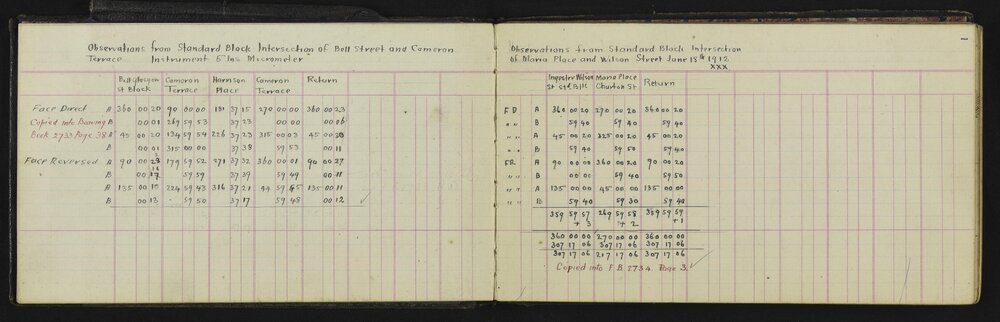 Observations from Standard Block Intersection of Bell Street and Cameron
Terrace Instrument 5 Ins Micrometer
Bell Glasgow Cameron Harrison Cameron Return
St Block Terrace Place Terrace
Face Direct A 360 00 20 90 00 00 181 37 15 270 00 00 360 00 23
Copied into Bearing B 00 01 269 59 53 37 23 00 00 00 06
Book 2733 Page 38 A 45 00 20 134 59 54 226 37 23 315 00 03 45 00 28
B 00 01 315 00 00 37 38 59 53 00 11
Face Reversed A 90 00 179 59 52 271 37 32 360 00 01 90 00 27
B 00 17 59 59 37 39 59 49 00 11
A 135 00 10 224 59 43 316 37 21 44 59 45 135 00 11
B 00 13 59 50 37 17 59 48 00 12 ✓
1
Observations from Standard Block Intersection
of Maria Place and Wilson Street June 18th 1912
xxx
Ingestre Wilson Maria Place
St Std Blk Churton St Return
FD A 360 00 20 270 00 20 360 00 20
" " B 59 40 59 40 59 40
" " A 45 00 20 325 00 20 45 00 20
B 59 40 59 50 59 40
FR A 90 00 00 360 00 20 90 00 20
B 00 00 59 40 59 50
" " A 135 00 00 45 00 00 135 00 00
" " B 59 40 59 30 59 40
359 59 57 269 59 58 359 59 59
+ 3 + 2 + 1
360 00 00 270 00 00 360 00 00
307 17 06 307 17 06 307 17 06
307 17 06 217 17 06 307 17 06
Copied into F.B. 2734 Page 3 ✓